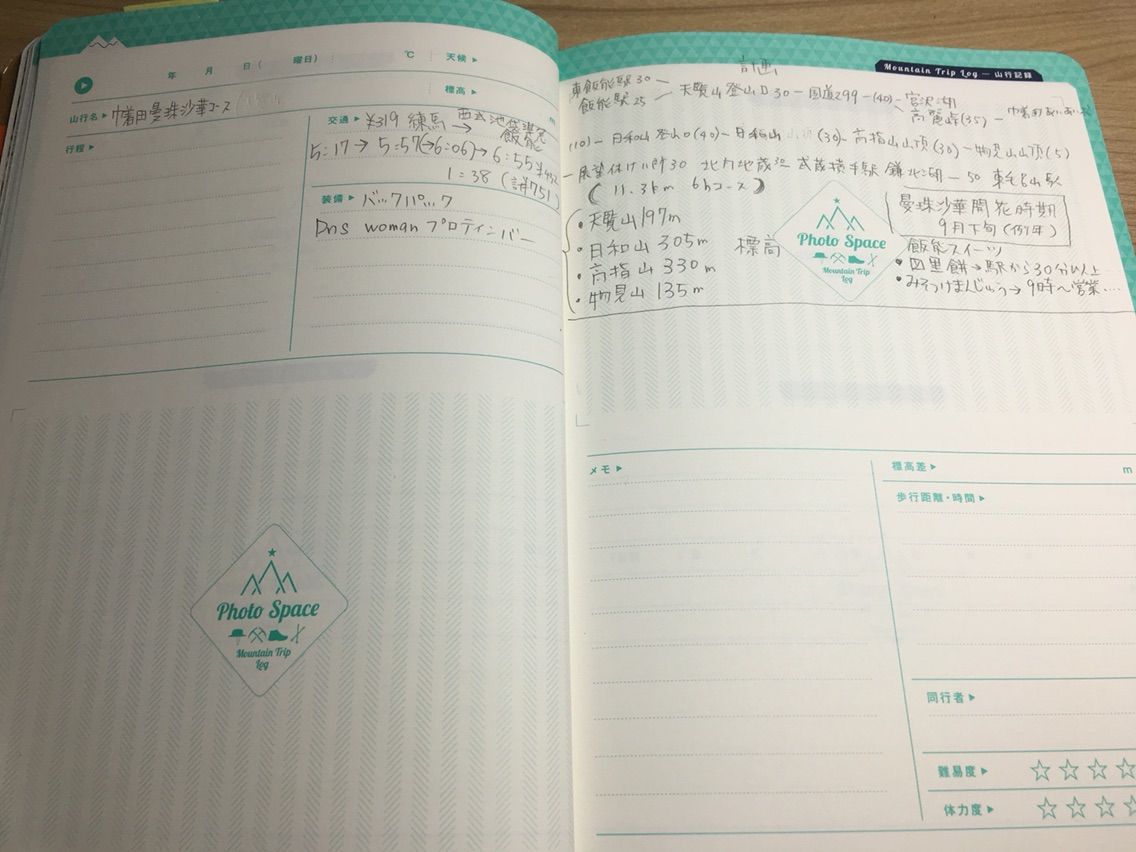 年 月 日( 曜日) ℃ 天候▶
山行名▶ 巾着田曼珠沙華コース
標高▶ m
行程▶
交通▶ ¥319 練馬→飯能
西武池袋線
5:17→5:57(→6:06)→6:55
1:38 (計751)
装備▶ バックパック
Dns woman プロティンバー
Photo Space
Mountain Trip
Log
計画
Mountain Trip Log — 山行記録
東飯能駅30—
飯能駅25— 天覧山登山口30—国道299—(40)—宮沢湖
高麗峠(35)—
(10)—日和山登山口(40)—日和山(30)—高指山山頂(30)—物見山山頂(5)
武蔵横手駅 鎌北湖—50
(11.3km 6hコース)
・天覧山197m
・日和山 305m
・高指山 330m
・物見山 135m
標高
Photo Space
Mountain Trip
Log
曼珠沙華開花時期
9月下旬(例年)
飯能スイーツ
・四里餅→駅から30分以上
・みそつけまんじゅう→9時〜営業....
メモ▶
標高差▶ m
歩行距離・時間▶
同行者▶
難易度▶ ☆☆☆☆
体力度▶ ☆☆☆☆